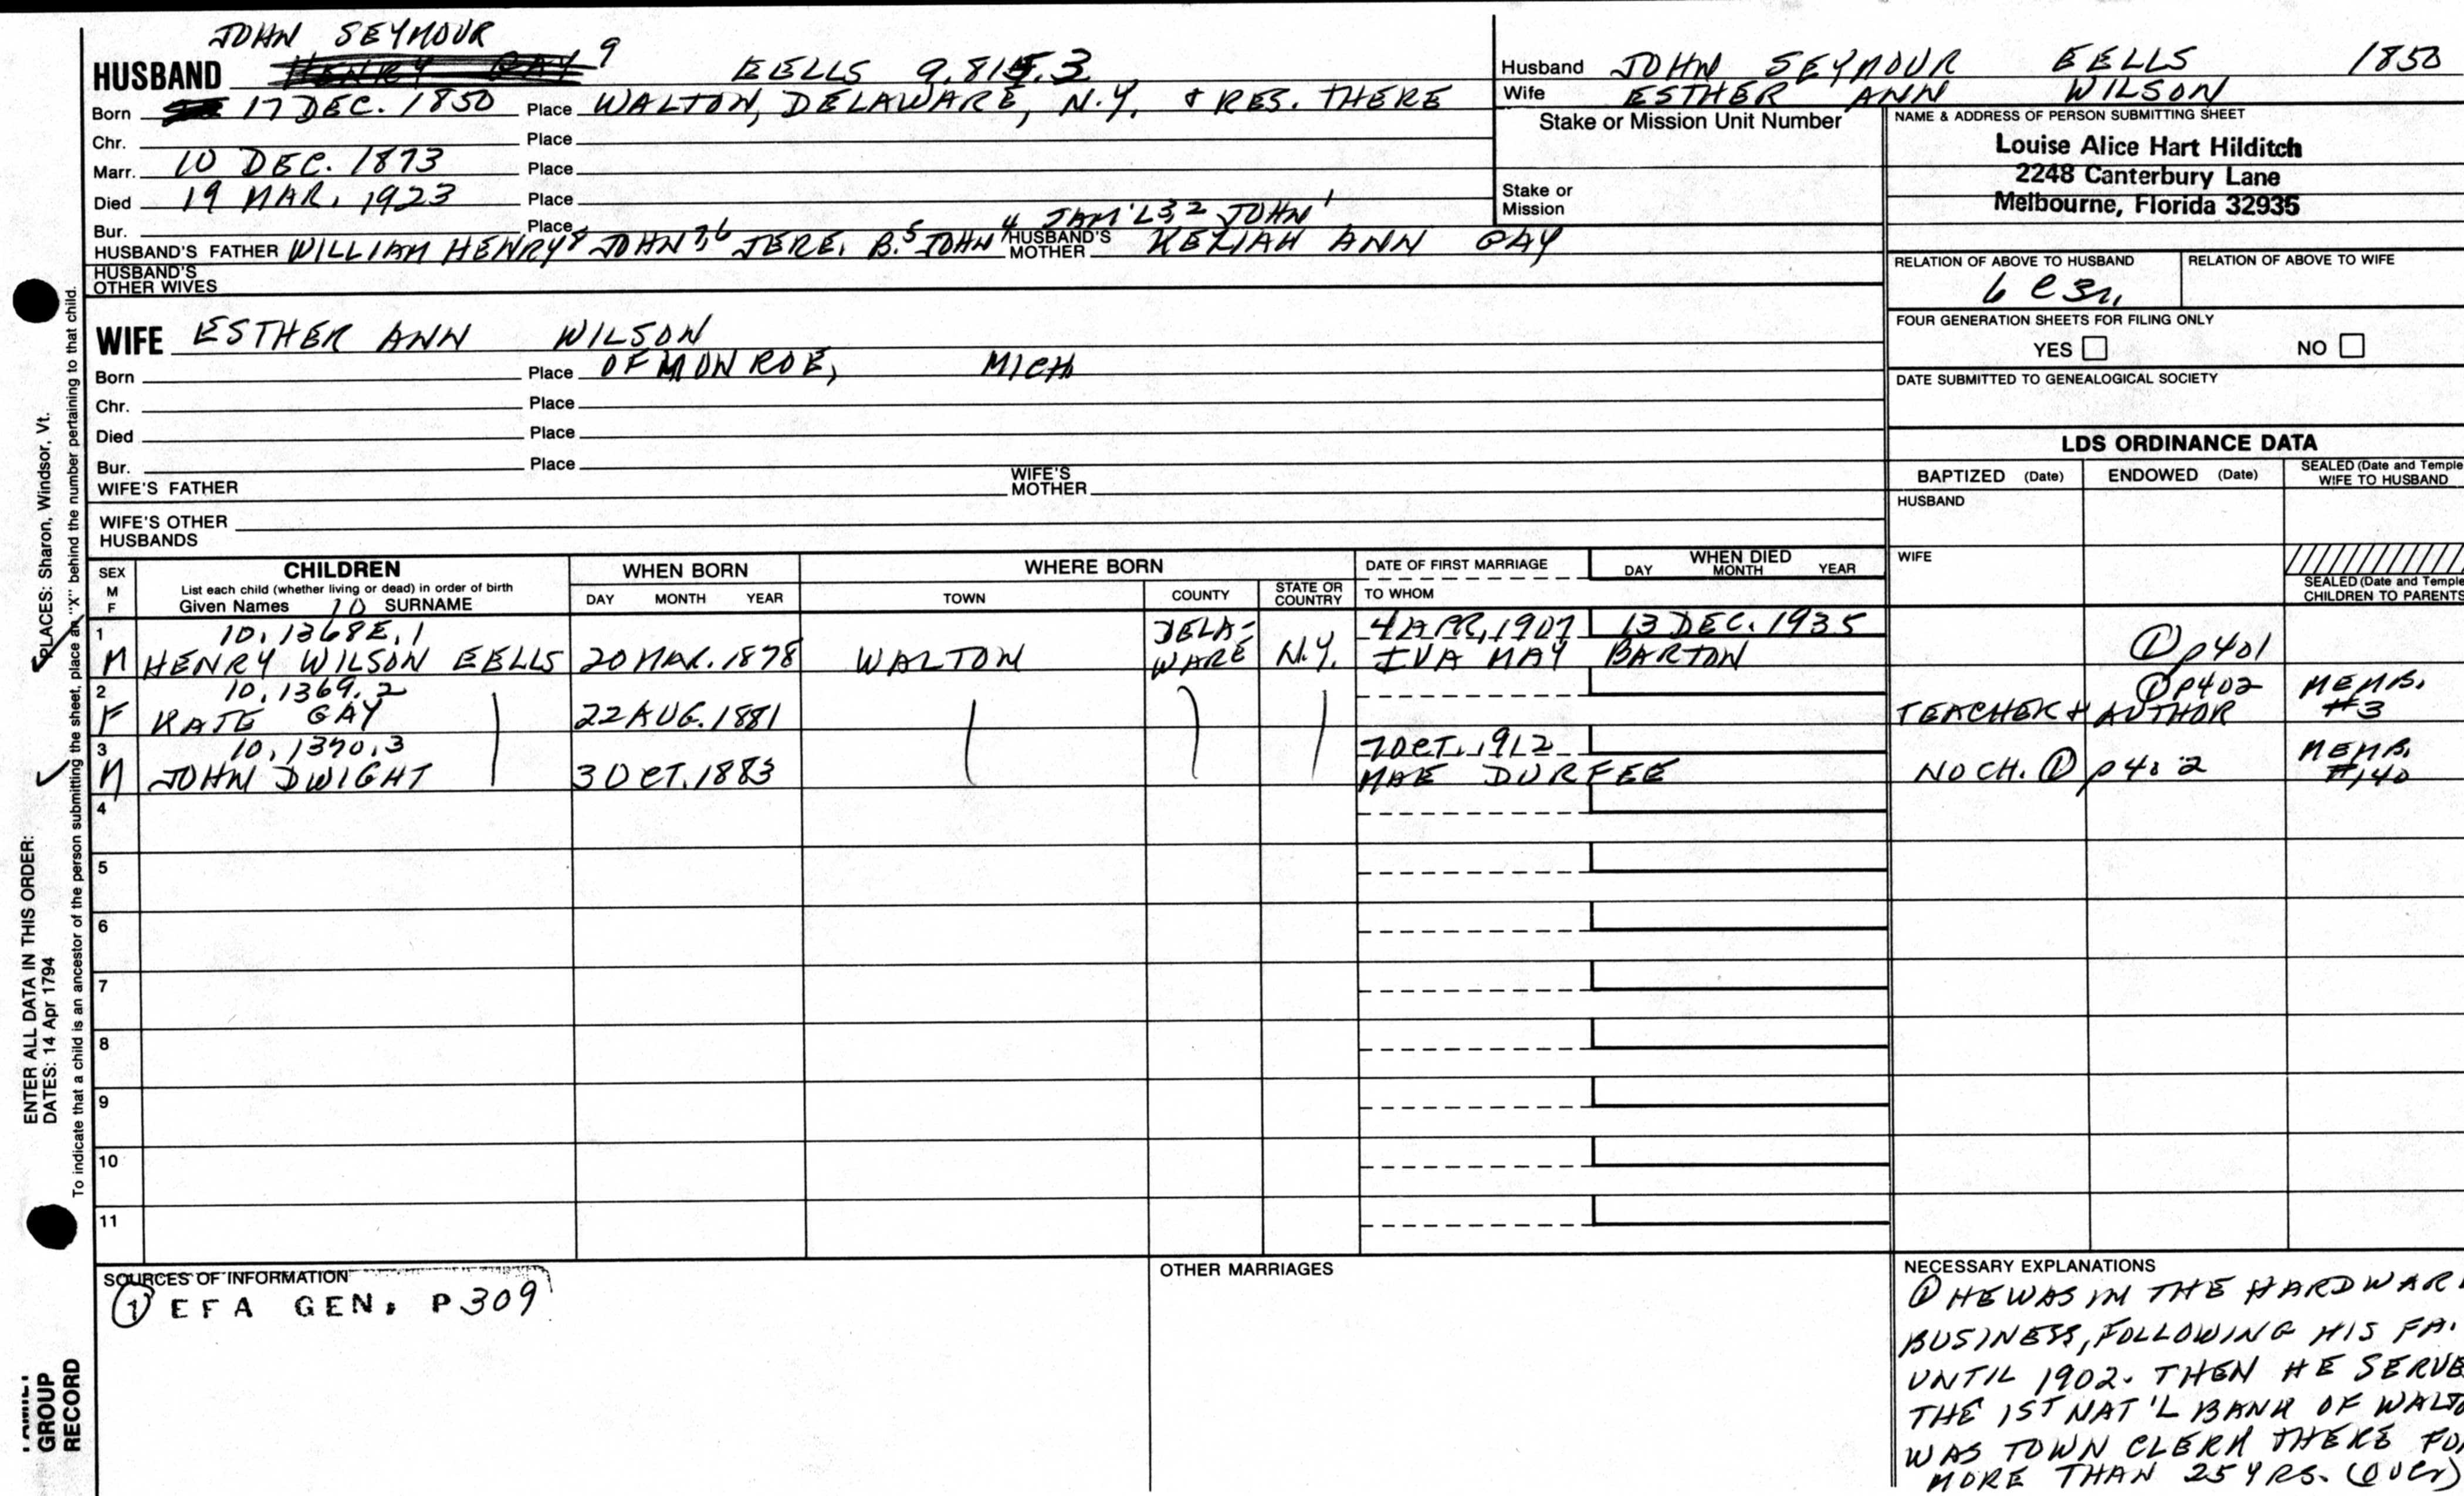 JOHN SEYMOUR
HUSBAND HENRY GAY 9 EELLS 9.815.3
Born 17 DEC. 1850 Place WALTON, DELAWARE, N.Y. & RES. THERE
Chr. Place
Marr. 10 DEC. 1873 Place
Died 19 MAR. 1923 Place
Bur. Place 4 SAM'L 3,2 JOHN 1
HUSBAND'S FATHER WILLIAM HENRY 8 JOHN 7,6 JERE. B. 5 JOHN HUSBAND'S MOTHER KEZIAH ANN GAY
HUSBAND'S OTHER WIVES
Husband JOHN SEYMOUR EELLS 1850
Wife ESTHER ANN WILSON
Stake or Mission Unit Number
Stake or Mission
NAME & ADDRESS OF PERSON SUBMITTING SHEET
Louise Alice Hart Hilditch
2248 Canterbury Lane
Melbourne, Florida 32935
RELATION OF ABOVE TO HUSBAND RELATION OF ABOVE TO WIFE
6 C 3R,
FOUR GENERATION SHEETS FOR FILING ONLY
YES NO
DATE SUBMITTED TO GENEALOGICAL SOCIETY
WIFE ESTHER ANN WILSON
Born Place OF MONROE, MICH
Chr. Place
Died Place
Bur. Place
WIFE'S FATHER WIFE'S MOTHER
WIFE'S OTHER HUSBANDS
LDS ORDINANCE DATA
BAPTIZED (Date) ENDOWED (Date) SEALED (Date and Temple
WIFE TO HUSBAND
HUSBAND
WIFE
SEALED (Date and Temple
CHILDREN TO PARENTS
SEX M F CHILDREN WHEN BORN WHERE BORN DATE OF FIRST MARRIAGE WHEN DIED
List each child (whether living or dead) in order of birth
Given Names 10 SURNAME DAY MONTH YEAR TOWN COUNTY STATE OR COUNTRY TO WHOM DAY MONTH YEAR
1 10.1368E.1 DELA- 4 APR, 1907 13 DEC. 1935
M HENRY WILSON EELLS 20 MAR. 1878 WALTON WARE N.Y. IVA MAY BARTON ① p401
2 10.1369.2 ① P402 MEMB.
F KATE GAY 22 AUG. 1881 TEACHER & AUTHOR #3
3 10.1370.3 7 OCT. 1912 MEMB.
M JOHN DWIGHT 3 OCT. 1883 MAE DURFEE NO CH. ① p402 #140
4
5
6
7
8
9
10
11
SOURCES OF INFORMATION
① EFA GEN. P309
OTHER MARRIAGES
NECESSARY EXPLANATIONS
① HE WAS IN THE HARDWAR
BUSINESS, FOLLOWING HIS FA.
UNTIL 1902. THEN HE SERVE
THE 1ST NAT'L BANK OF WALTO
WAS TOWN CLERK THERE FO
MORE THAN 25 YRS. (over)
PLACES: Sharon, Windsor, Vt.
ENTER ALL DATA IN THIS ORDER:
DATES: 14 Apr 1794
To indicate that a child is an ancestor of the person submitting the sheet, place an "X" behind the number pertaining to that child.
FAMILY
GROUP
RECORD